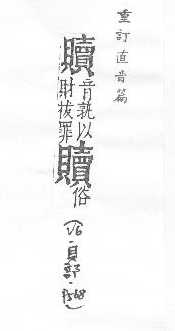 重訂直音篇
贖音孰以財拔罪贖俗
(V6.貝部.P.568)